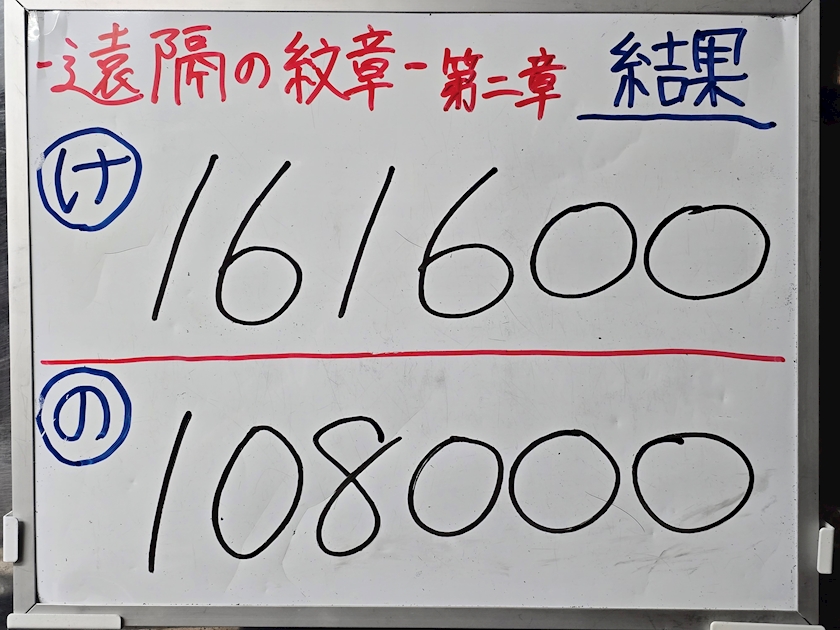 -遠隔の紋章-第二章 結果
け 161600
の 108000